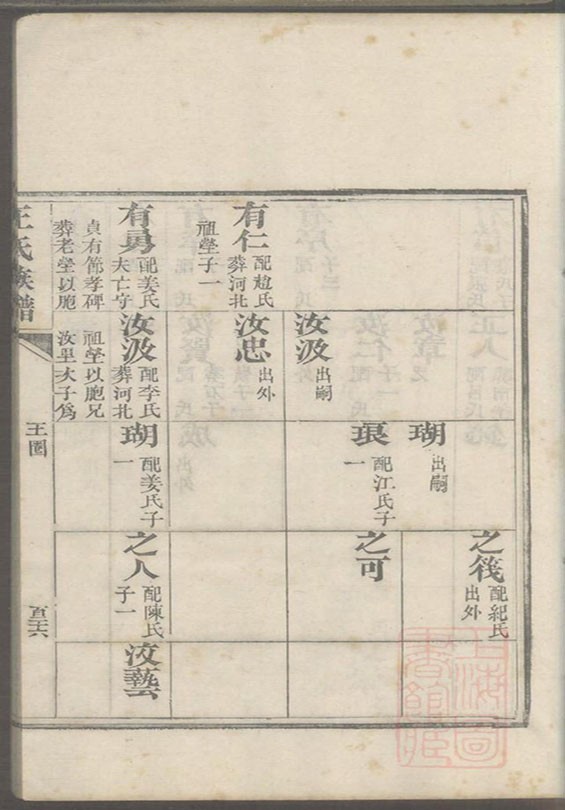 有仁 配趙氏
葬河北
祖塋子一
有勇 配姜氏
夫亡守
貞有節孝碑
葬老塋以胞
汝汲 出嗣
汝忠 出外
汝汲 配李氏
葬河北
祖塋以胞兄
汝里次子爲
瑚 出嗣
珢 配江氏子
一
瑚 配姜氏子
一
之筏 配紀氏
出外
之可
之人 配陳氏
子一
汶藝
王氏族譜
王圖
百三六
上海圖
書館藏